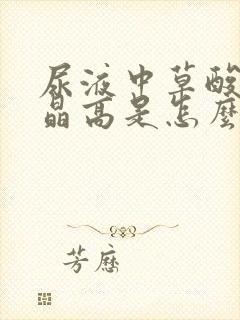 尿液中草酸
晶高是怎麼
芳歷